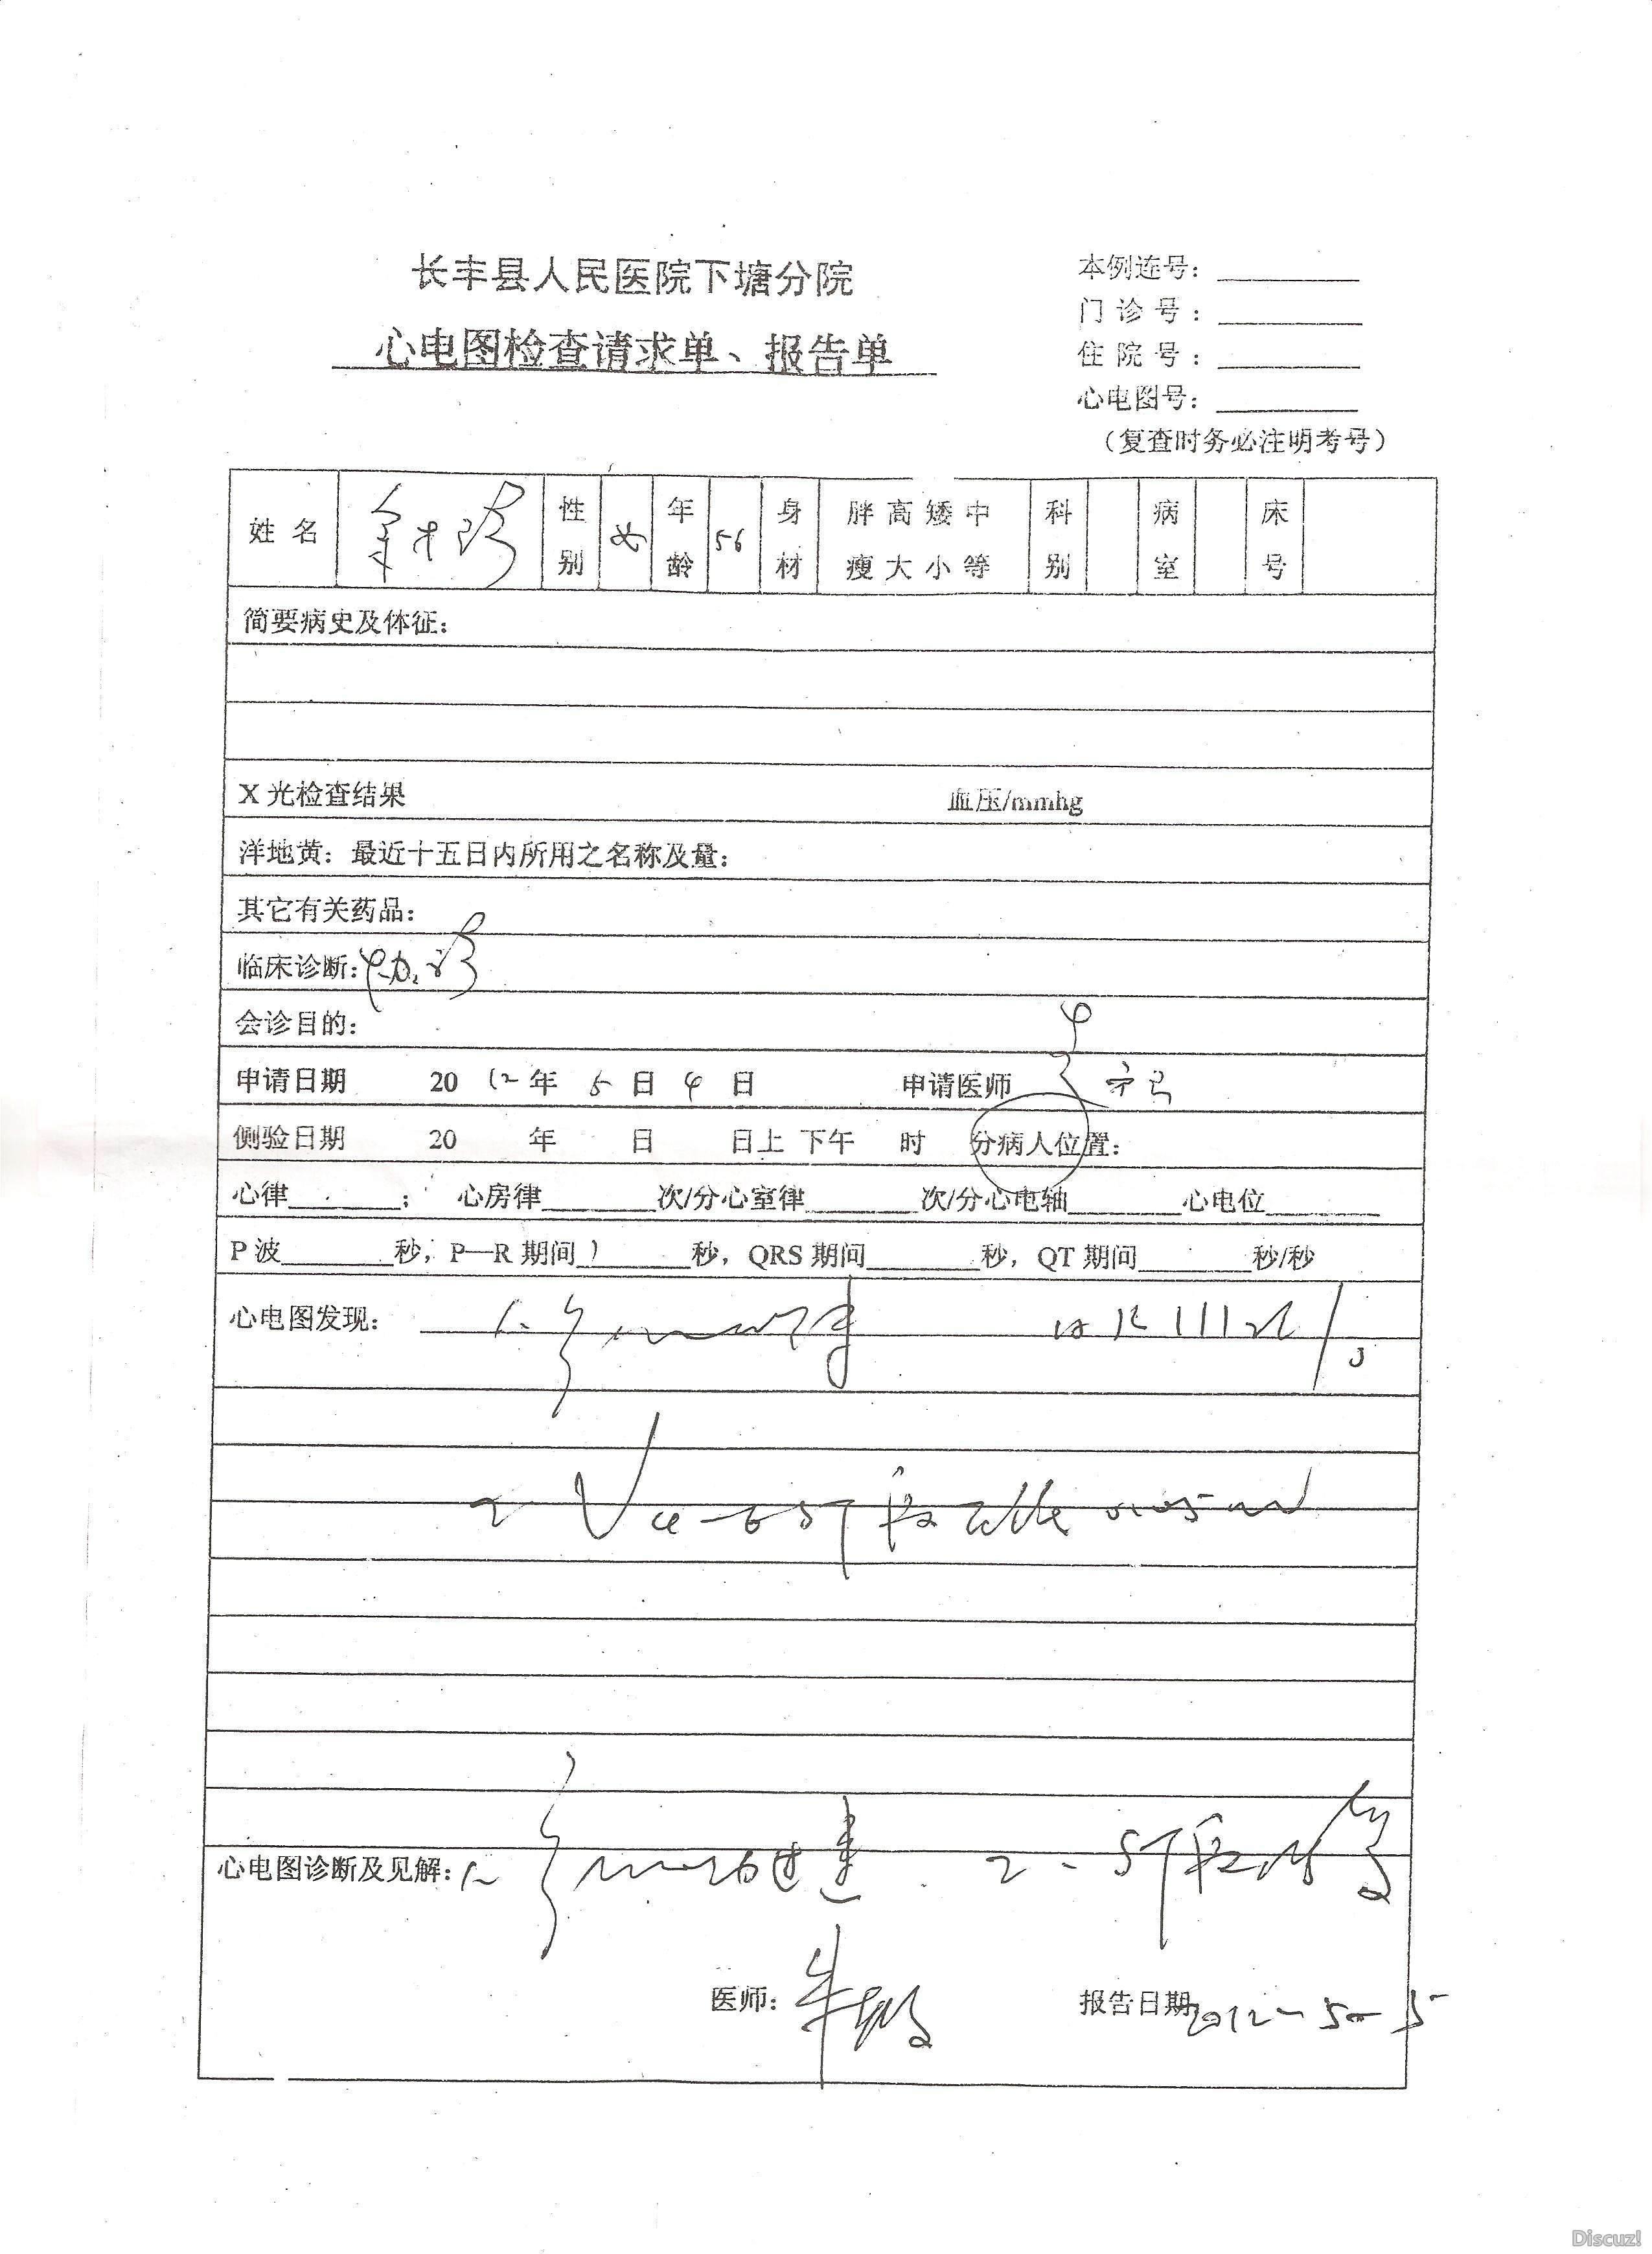 长丰县人民医院下塘分院
心电图检查请求单、报告单
本例连号：
门诊号：
住院号：
心电图号：
（复查时务必注明考号）
姓名 性别 女 年龄 56 身材 胖高矮中瘦大小等 科别 病室 床号
简要病史及体征：
X光检查结果 血压/mmhg
洋地黄：最近十五日内所用之名称及量：
其它有关药品：
临床诊断：
会诊目的：
申请日期 2012年 5日 4日 申请医师
侧验日期 20 年 日 日上下午 时 分病人位置：
心律 ； 心房律 次/分心室律 次/分心电轴 心电位
P波 秒，P—R期间 秒，QRS期间 秒，QT期间 秒/秒
心电图发现： 1、 111次/
2、V4-6 ST段
心电图诊断及见解：1、 过速 2、ST段
医师： 报告日期 2012-5-5
Discuz!